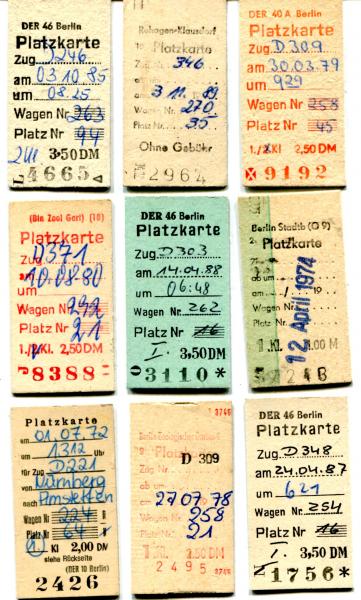 DER 46 Berlin
Platzkarte
Zug D246
am 03.10.85
um 08.25
Wagen Nr 263
Platz Nr 94
3,50 DM
4665
Rehagen-Klausdorf
Platzkarte
Zug 346
am 3.11.89
Wagen Nr. 270
Platz Nr. 35
Ohne Gebühr
2964
DER 40 A Berlin
Platzkarte
Zug D 309
am 30.03.79
um 929
Wagen Nr 258
Platz Nr 45
1./2. Kl 2,50 DM
9192
(Bln Zool Gart) (10)
Platzkarte
Zug D371
am 10.08.80
um
Wagen Nr 292
Platz Nr 21
1./2. Kl. 2,50 DM
8388
DER 46 Berlin
Platzkarte
Zug D303
am 14.04.88
um 06:48
Wagen Nr. 262
Platz Nr 16
I. 3,50 DM
3110*
Berlin Stadtb (G 9)
2. Platzkarte
Zug
ab um
am / 19
Wagen Nr.
Platz Nr.
1 Kl.
12. April 1974
Platzkarte
am 01.07.72
um 1312 Uhr
für Zug D221
von Nürnberg
nach Amstetten
Wagen Nr 224
Platz Nr 64
Kl 2,00 DM
siehe Rückseite
(DER 10 Berlin)
2426
3746
Platzkarte
D 309
ab um
am 27.07.78
Wagen Nr. 258
Platz Nr. 21
2.50 DM
2495 3746
DER 46 Berlin
Platzkarte
Zug D 348
am 24.04.87
um 621
Wagen Nr 254
Platz Nr 16
I. 3,50 DM
1756*